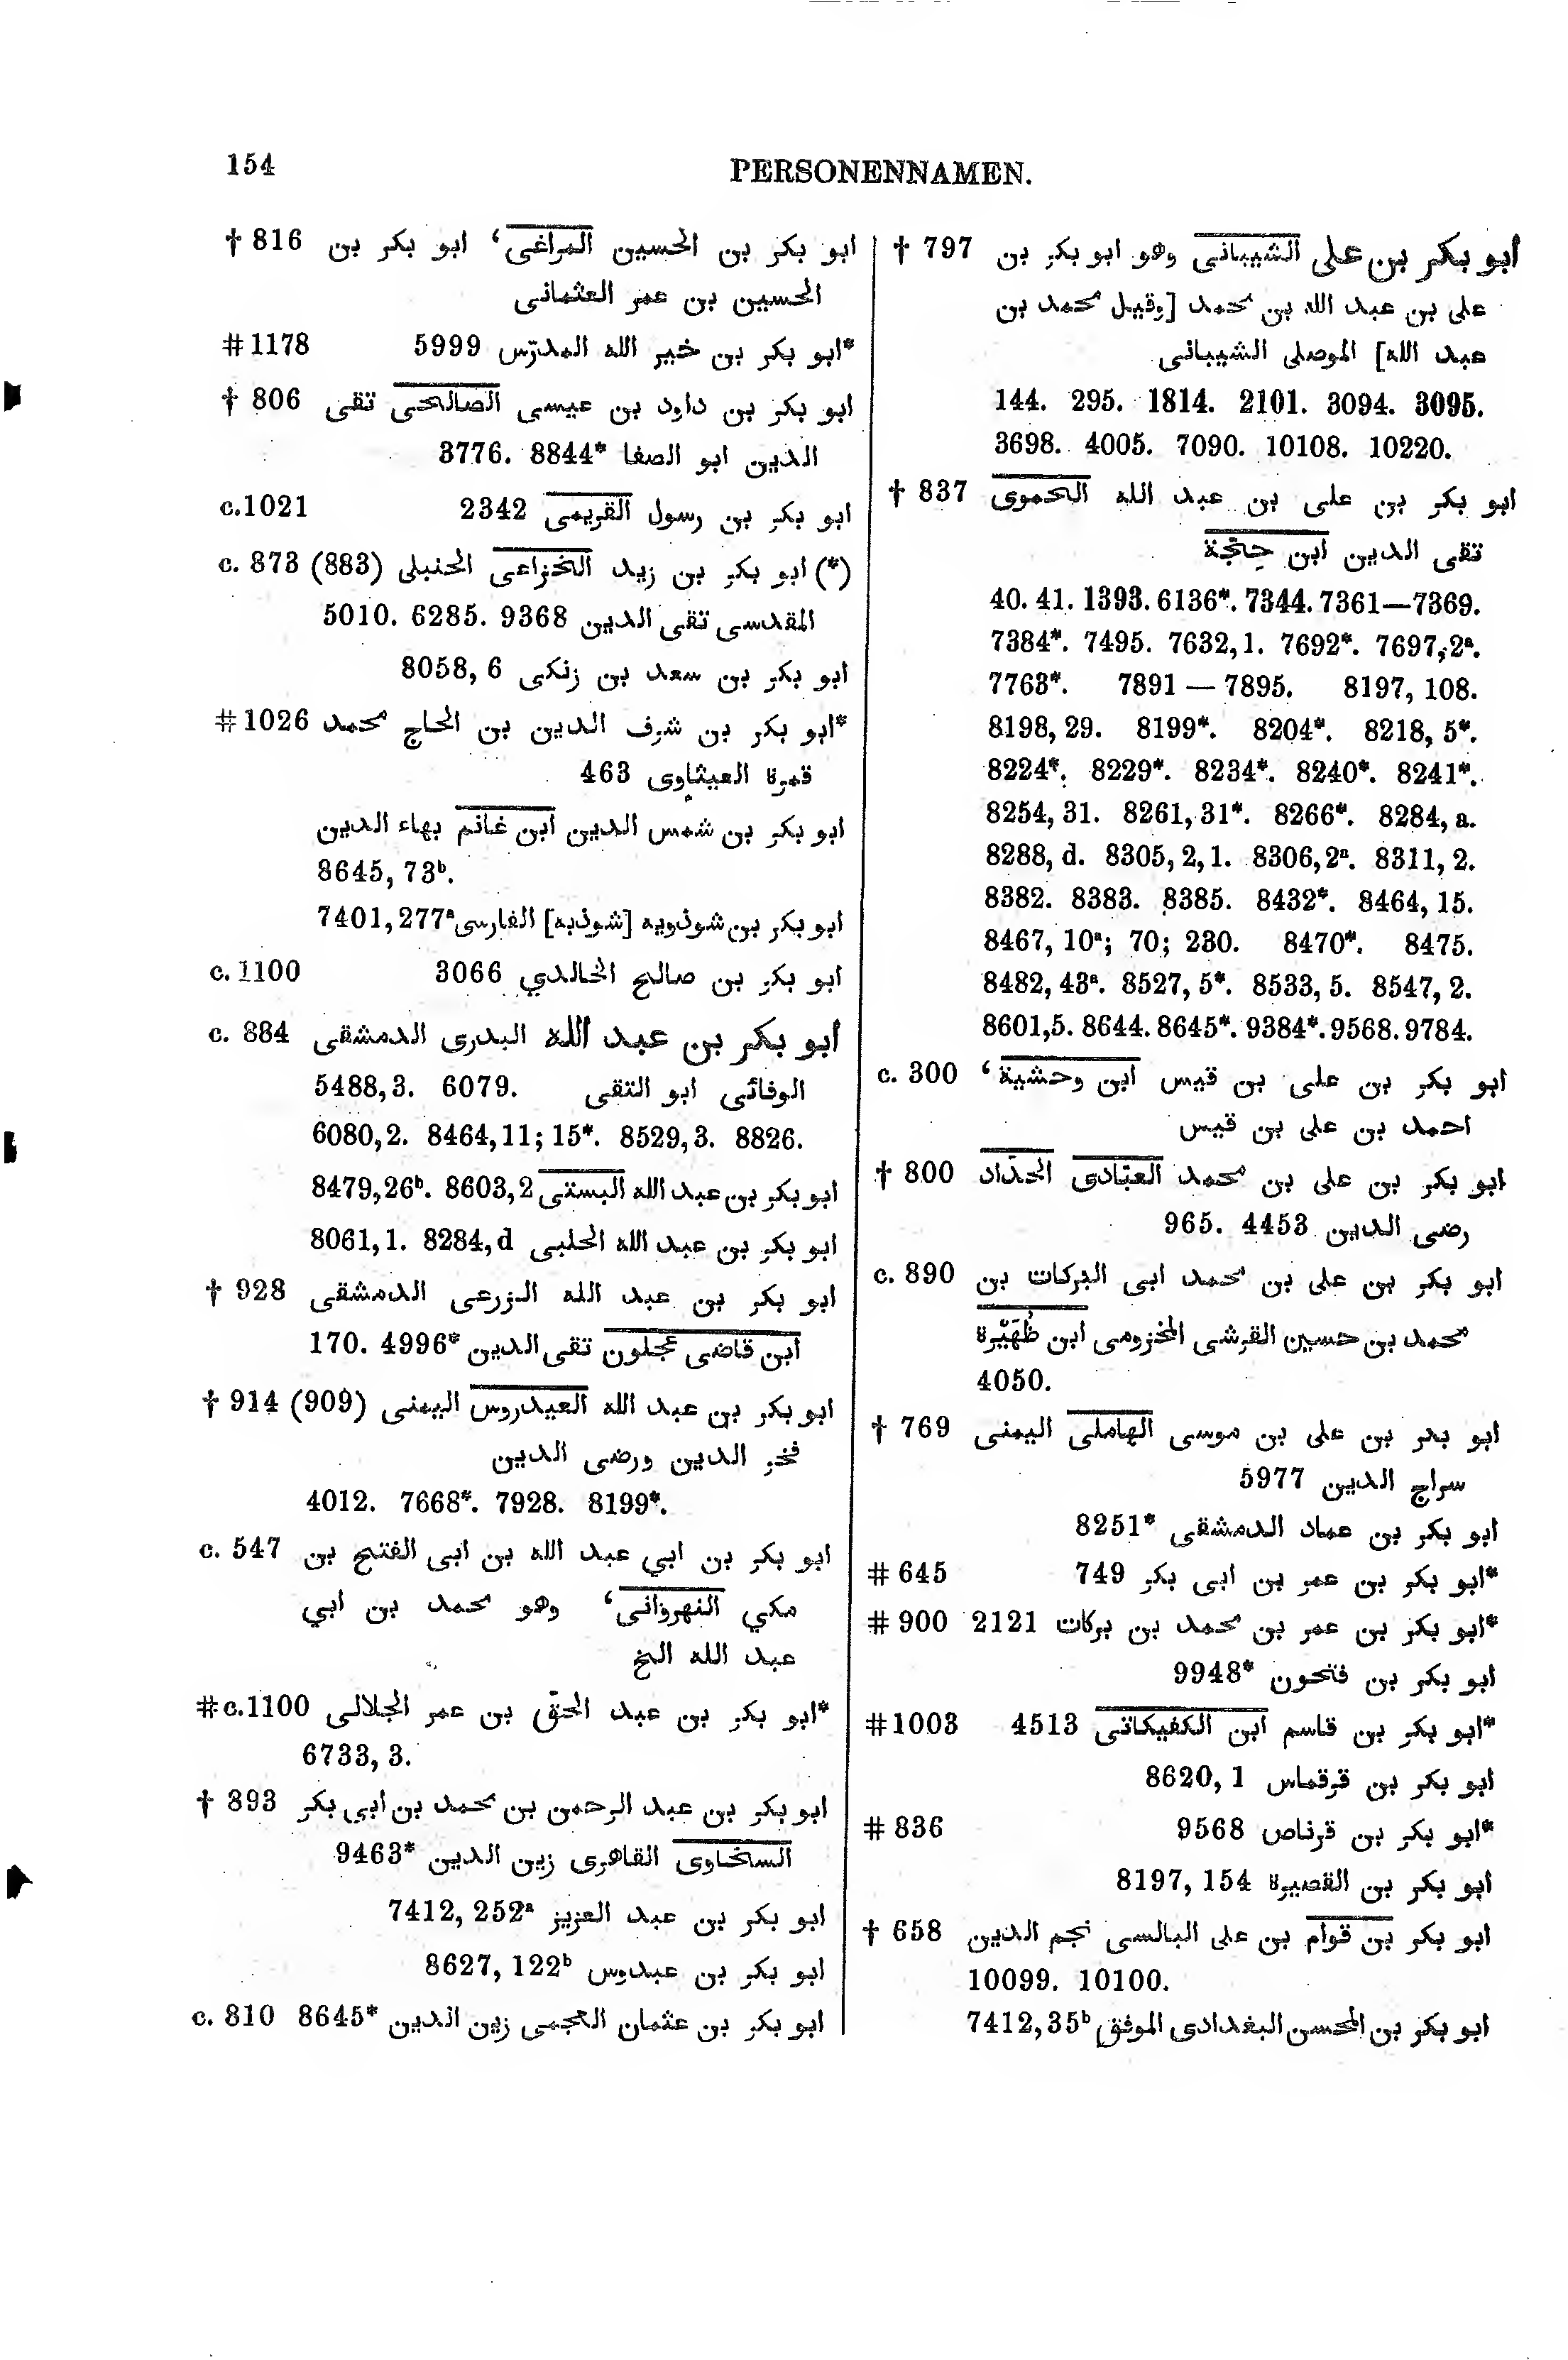 154 PERSONENNAMEN.
ابو بكر بن الحسين المراغى‘ ابو بكر بن † 816
الحسين بن عمر العثمانى
*ابو بكر بن خير الله المدرّس 5999 #1178
ابو بكر بن داود بن عيسى الصالحى تقى † 806
الدين ابو الصفا 3776. 8844*
ابو بكر بن رسول القريمى 2342 c.1021
(*) ابو بكر بن زيد الخزاعى الحنبلى c. 873 (883)
المقدسى تقى الدين 5010. 6285. 9368
ابو بكر بن سعد بن زنكى 8058, 6
*ابو بكر بن شرف الدين بن الحاج محمد #1026
قمرة العيثاوى 463
ابو بكر بن شمس الدين ابن غانم بهاء الدين
8645, 73ᵇ.
ابو بكر بن شوذويه [شوذبه] الفارسى 7401,277ᵃ
ابو بكر بن صالح الخالدي 3066 c. 1100
ابو بكر بن عبد الله البدرى الدمشقى c. 884
الوفائى ابو التقى 5488,3. 6079.
6080,2. 8464,11; 15*. 8529,3. 8826.
ابو بكر بن عبد الله البستى 8479,26ᵇ. 8603,2
ابو بكر بن عبد الله الحلبى 8061,1. 8284,d
ابو بكر بن عبد الله الزرعى الدمشقى † 928
ابن قاضى عجلون تقى الدين 170. 4996*
ابو بكر بن عبد الله العيدروس اليمنى † 914 (909)
فخر الدين ورضى الدين
4012. 7668*. 7928. 8199*.
ابو بكر بن ابي عبد الله بن ابى الفتح بن c. 547
مكي النهروانى‘ وهو محمد بن ابي
عبد الله الخ
*ابو بكر بن عبد الحقّ بن عمر الجلالى #c.1100
6733, 3.
ابو بكر بن عبد الرحمن بن محمد بن ابى بكر † 893
السخاوى القاهرى زين الدين 9463*
ابو بكر بن عبد العزيز 7412, 252ᵃ
ابو بكر بن عبدوس 8627, 122ᵇ
ابو بكر بن عثمان العجمى زين الدين 8645* c. 810
ابو بكر بن على الشيبانى وهو ابو بكر بن † 797
على بن عبد الله بن محمد [وقيل محمد بن
عبد الله] الموصلى الشيبانى
144. 295. 1814. 2101. 3094. 3095.
3698. 4005. 7090. 10108. 10220.
ابو بكر بن على بن عبد الله الحموى † 837
تقى الدين ابن حِجّة
40. 41. 1393. 6136*. 7344. 7361—7369.
7384*. 7495. 7632,1. 7692*. 7697,2ᵃ.
7763*. 7891 — 7895. 8197, 108.
8198, 29. 8199*. 8204*. 8218, 5*.
8224*. 8229*. 8234*. 8240*. 8241*.
8254, 31. 8261, 31*. 8266*. 8284, a.
8288, d. 8305, 2, 1. 8306, 2ᵃ. 8311, 2.
8382. 8383. 8385. 8432*. 8464, 15.
8467, 10ᵃ; 70; 230. 8470*. 8475.
8482, 43ᵃ. 8527, 5*. 8533, 5. 8547, 2.
8601,5. 8644. 8645*. 9384*. 9568. 9784.
ابو بكر بن على بن قيس ابن وحشية‘ c. 300
احمد بن على بن قيس
ابو بكر بن على بن محمد العبّادى الحدّاد † 800
رضى الدين 965. 4453
ابو بكر بن على بن محمد ابى البركات بن c. 890
محمد بن حسين القرشى المخزومى ابن ظُهَيْرة
4050.
ابو بدر بن على بن موسى الهاملى اليمنى † 769
سراج الدين 5977
ابو بكر بن عماد الدمشقى 8251*
*ابو بكر بن عمر بن ابى بكر 749 # 645
*ابو بكر بن عمر بن محمد بن بركات 2121 # 900
ابو بكر بن فتحون 9948*
*ابو بكر بن قاسم ابن الكفيكاتى 4513 #1003
ابو بكر بن قرقماس 8620, 1
*ابو بكر بن قرناص 9568 # 836
ابو بكر بن القصيرة 8197, 154
ابو بكر بن قوام بن على البالسى نجم الدين † 658
10099. 10100.
ابو بكر بن المحسن البغدادى الموفق 7412,35ᵇ